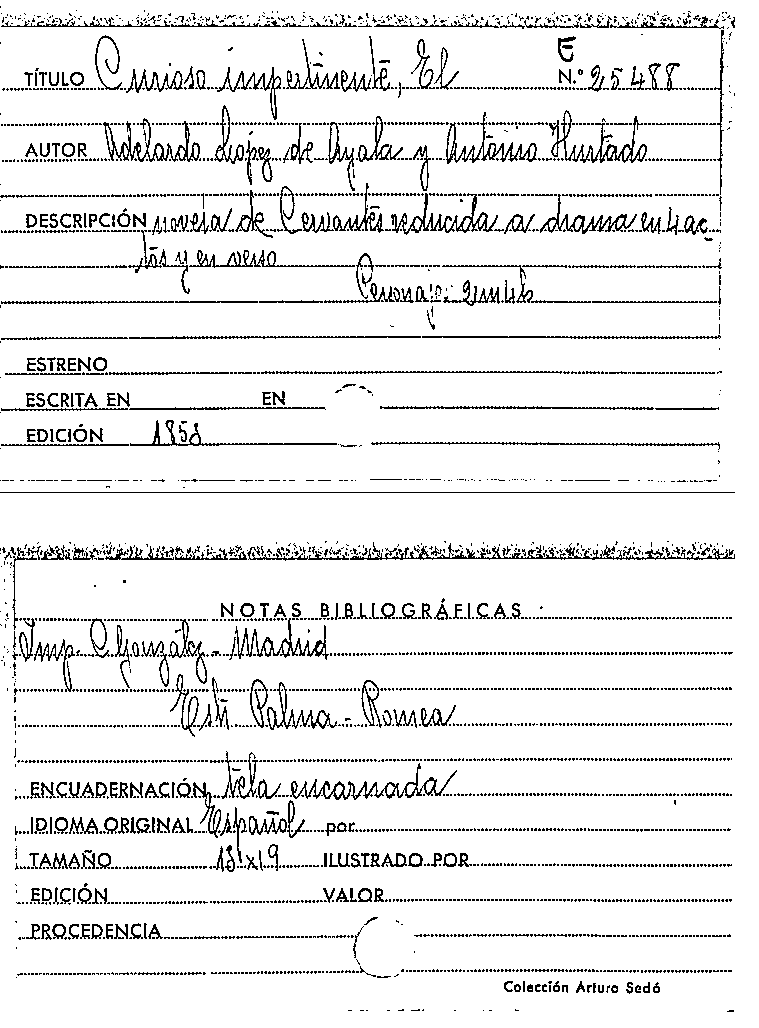 E
TÍTULO Curioso impertinente, El N.º 25488
AUTOR Adelardo López de Ayala y Antonio Hurtado
DESCRIPCIÓN novela de Cervantes reducida a drama en 4 ac-
tos y en verso
Personajes: 2m4h
ESTRENO
ESCRITA EN EN
EDICIÓN 1853
NOTAS BIBLIOGRÁFICAS
Imp. C. González - Madrid
Estr. Palma - Romea
ENCUADERNACIÓN tela encarnada
IDIOMA ORIGINAL Español por
TAMAÑO 13'x19 ILUSTRADO POR
EDICIÓN VALOR
PROCEDENCIA
Colección Arturo Sedó